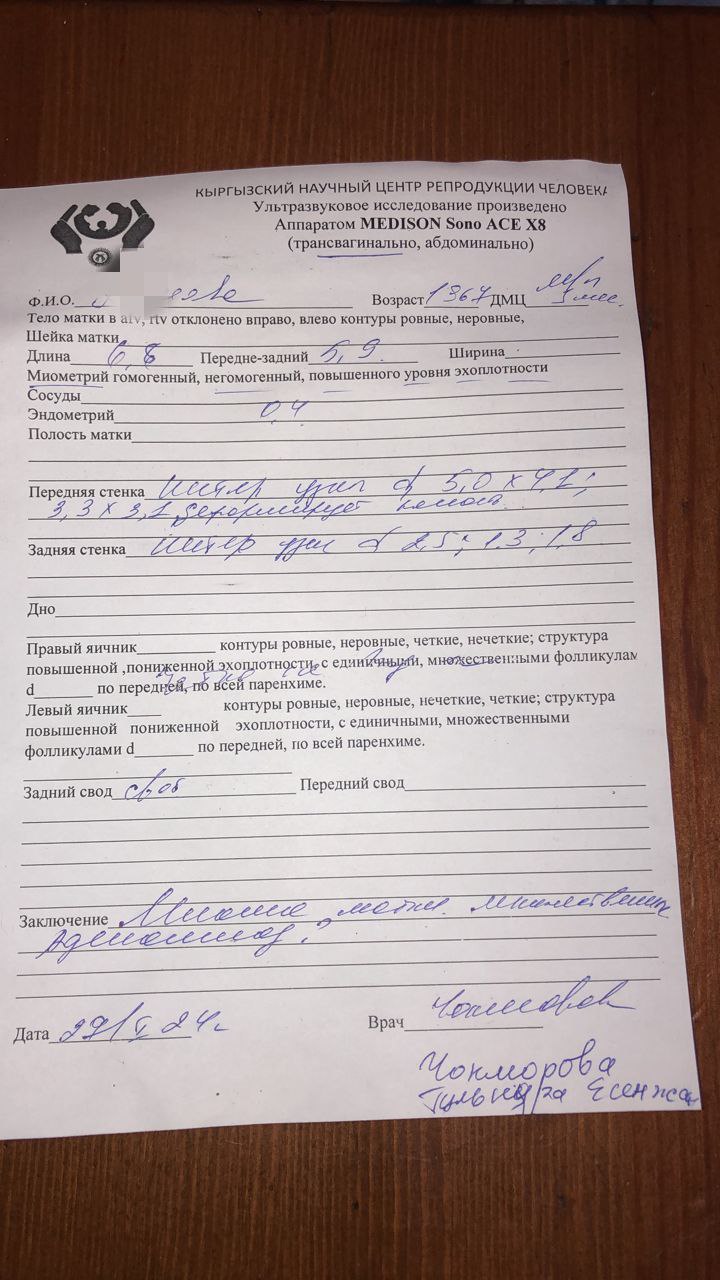 КЫРГЫЗСКИЙ НАУЧНЫЙ ЦЕНТР РЕПРОДУКЦИИ ЧЕЛОВЕКА
Ультразвуковое исследование произведено
Аппаратом MEDISON Sono ACE X8
(трансвагинально, абдоминально)
Ф.И.О. Возраст 1367 ДМЦ
Тело матки в afv, rtv отклонено вправо, влево контуры ровные, неровные,
Шейка матки
Длина 6,8 Передне-задний 5,9 Ширина
Миометрий гомогенный, негомогенный, повышенного уровня эхоплотности
Сосуды
Эндометрий 0,4
Полость матки
Передняя стенка Интер узлы d 5,0 x 4,1;
3,3 x 3,1 деформирует полость
Задняя стенка Интер узлы d 2,5; 1,3; 1,8
Дно
Правый яичник контуры ровные, неровные, четкие, нечеткие; структура
повышенной ,пониженной эхоплотности, с единичными, множественными фолликулам
d по передней, по всей паренхиме.
Левый яичник контуры ровные, неровные, нечеткие, четкие; структура
повышенной пониженной эхоплотности, с единичными, множественными
фолликулами d по передней, по всей паренхиме.
Задний свод своб Передний свод
Заключение Миома матки множественная
Аденомиоз?
Дата 29/V 24г Врач
Чонморова